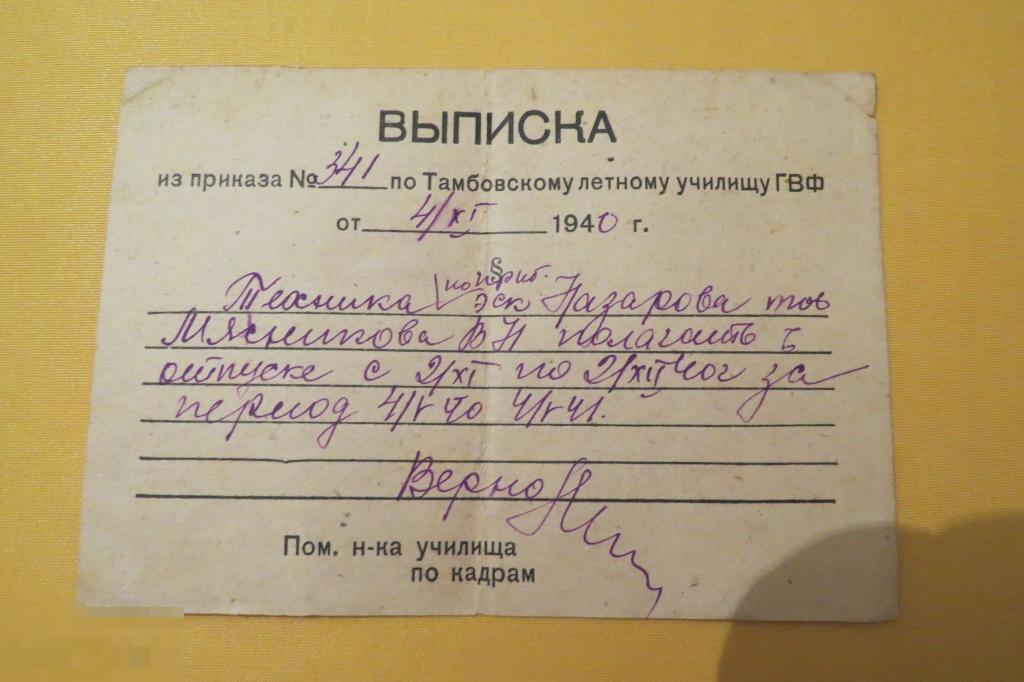 ВЫПИСКА
из приказа № 341 по Тамбовскому летному училищу ГВФ
от 4/XI 1940 г.
§
Техника по приб. эск Назарова тов
Мясникова В Н полагать в
отпуске с 2/XI по 2/XII 40г за
период 4/V 40 4/V 41.
Верно
Пом. н-ка училища
по кадрам